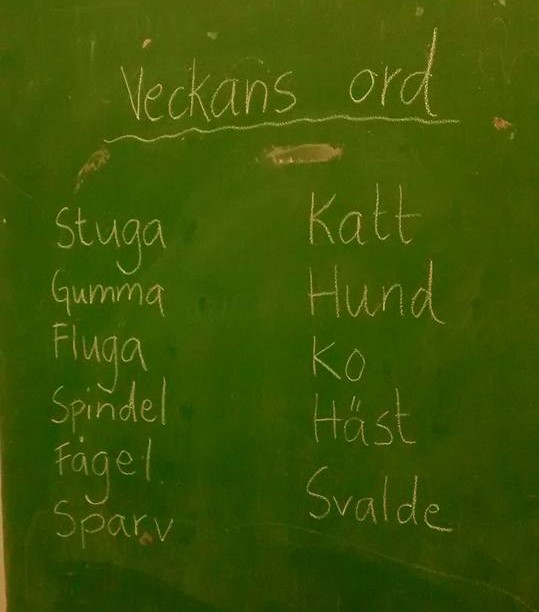 Veckans ord
Stuga
Gumma
Fluga
Spindel
Fågel
Sparv
Katt
Hund
Ko
Häst
Svalde